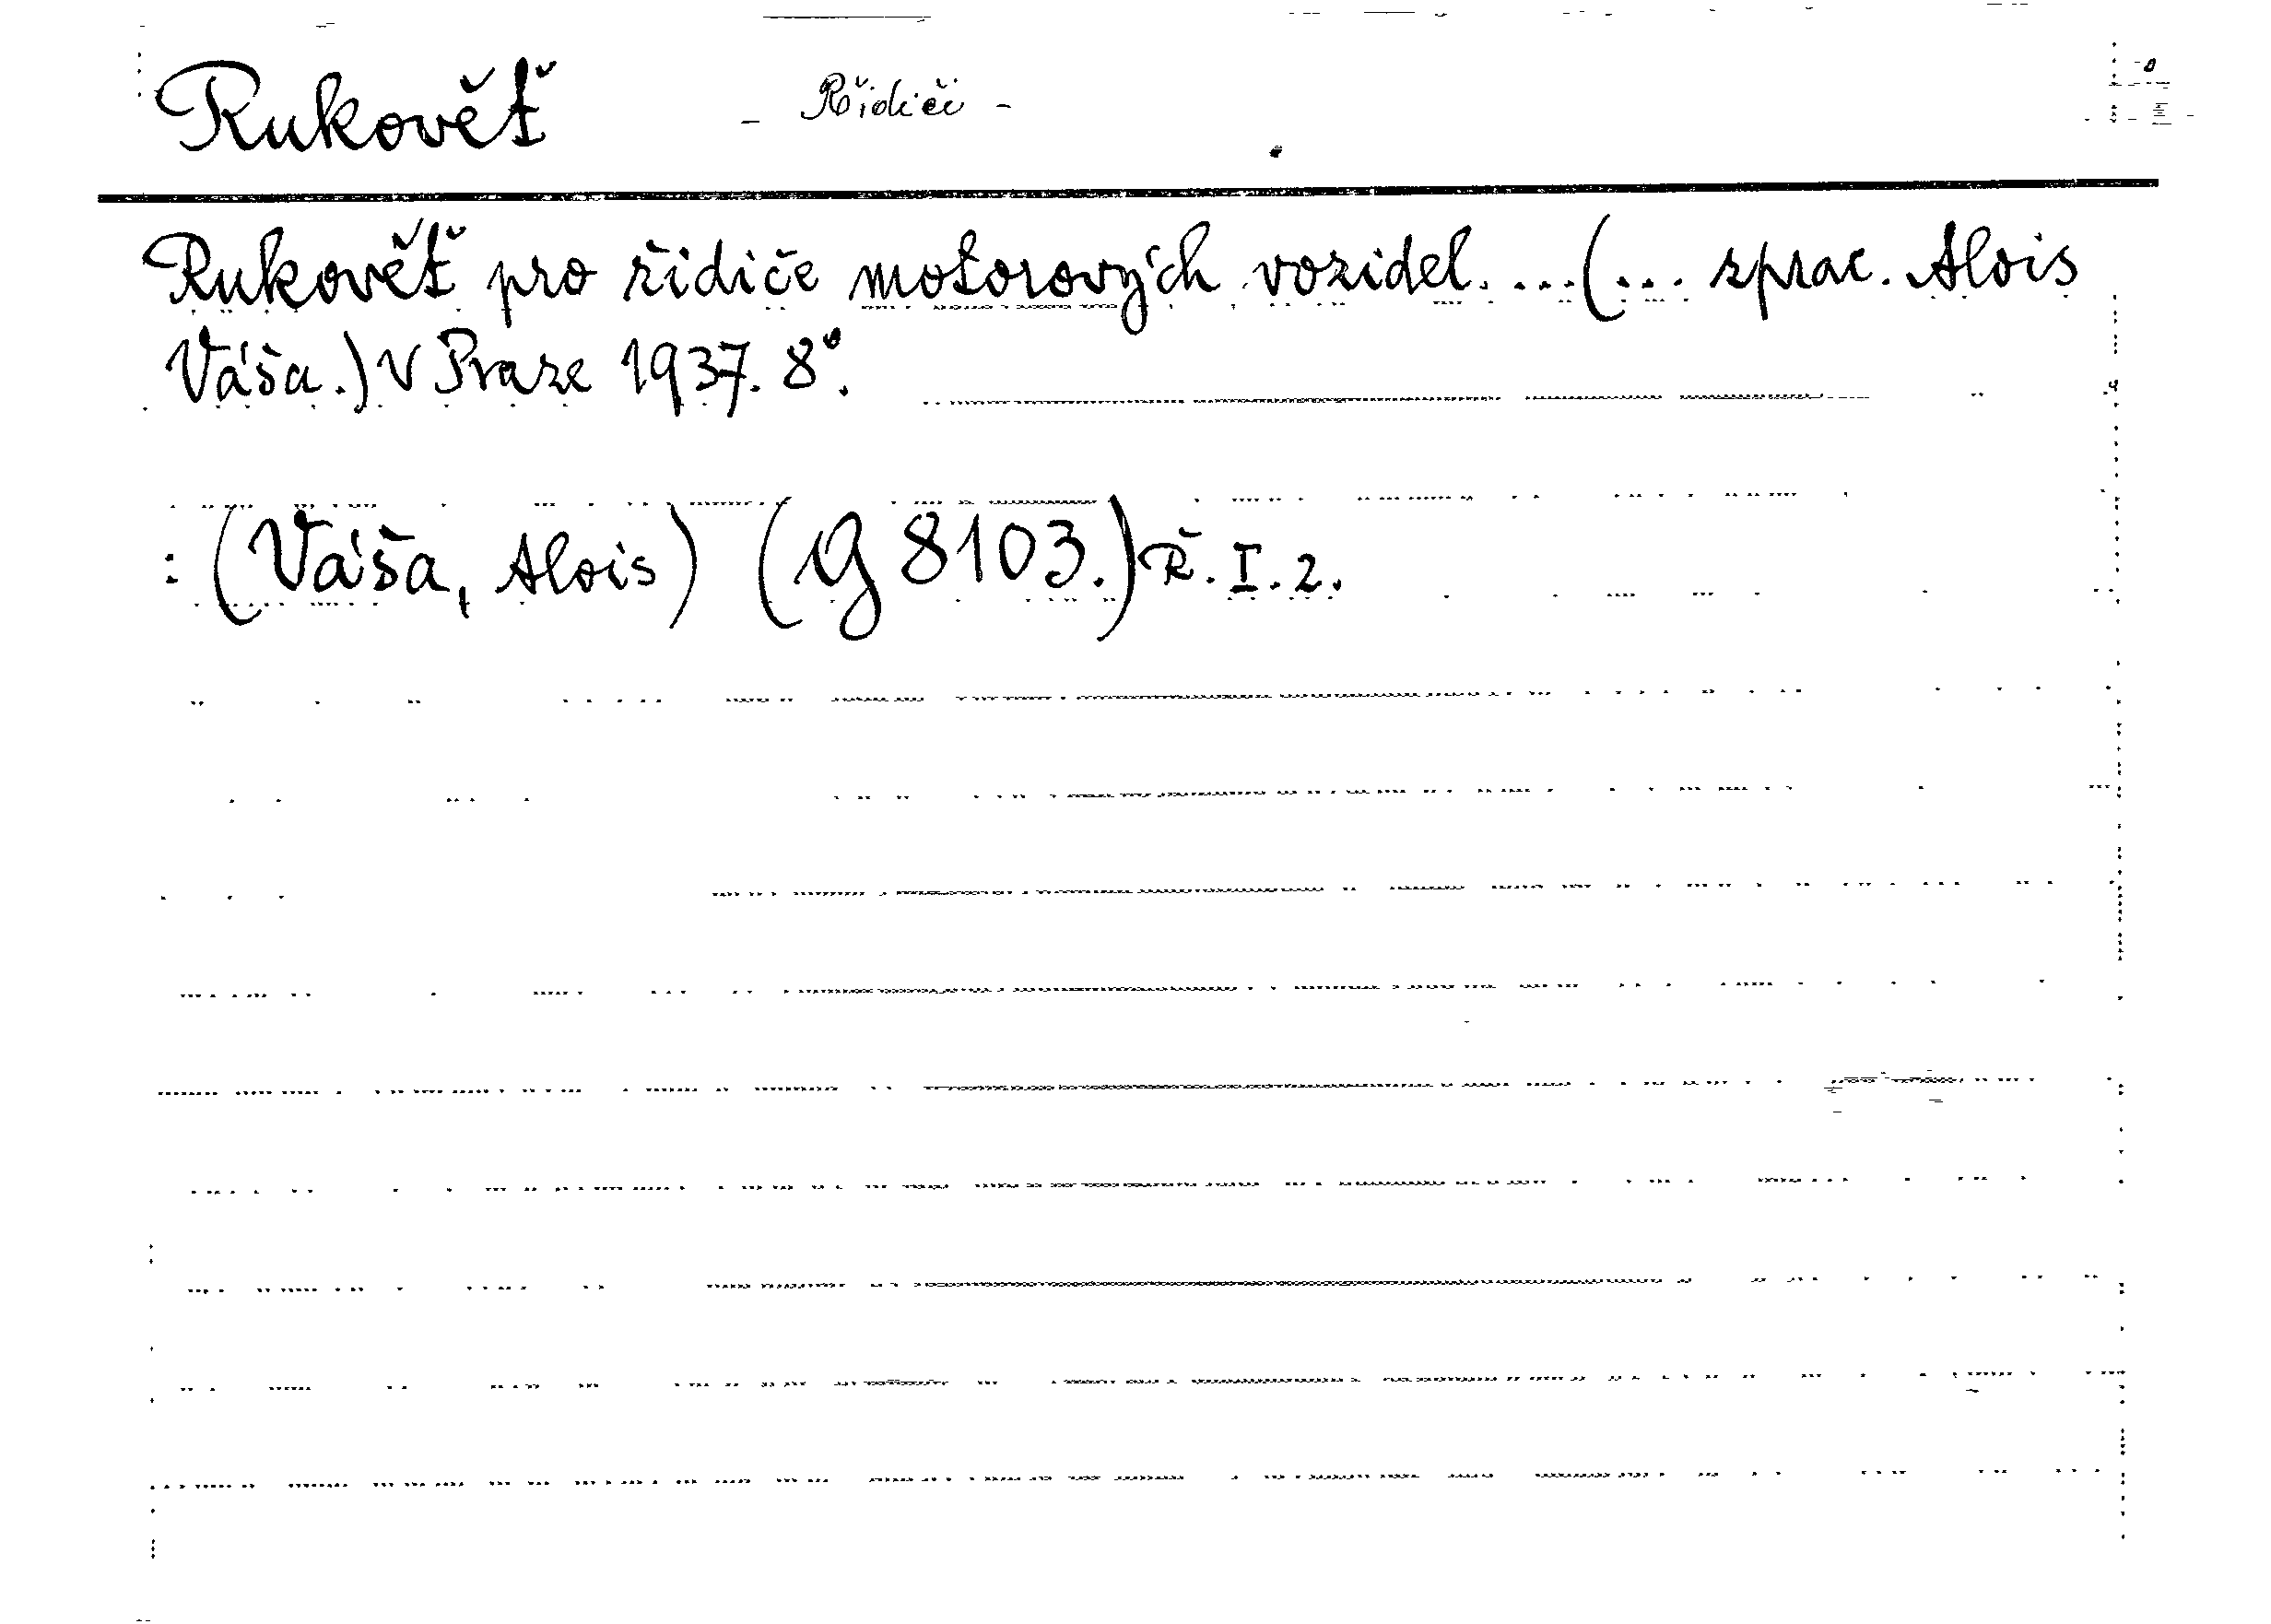 Rukověť - Řidiči -
Rukověť pro řidiče motorových vozidel. ...(... zprac. Alois
Váša.) V Praze 1937. 8°.
: (Váša, Alois) (G 8103.) Ř. I. 2.